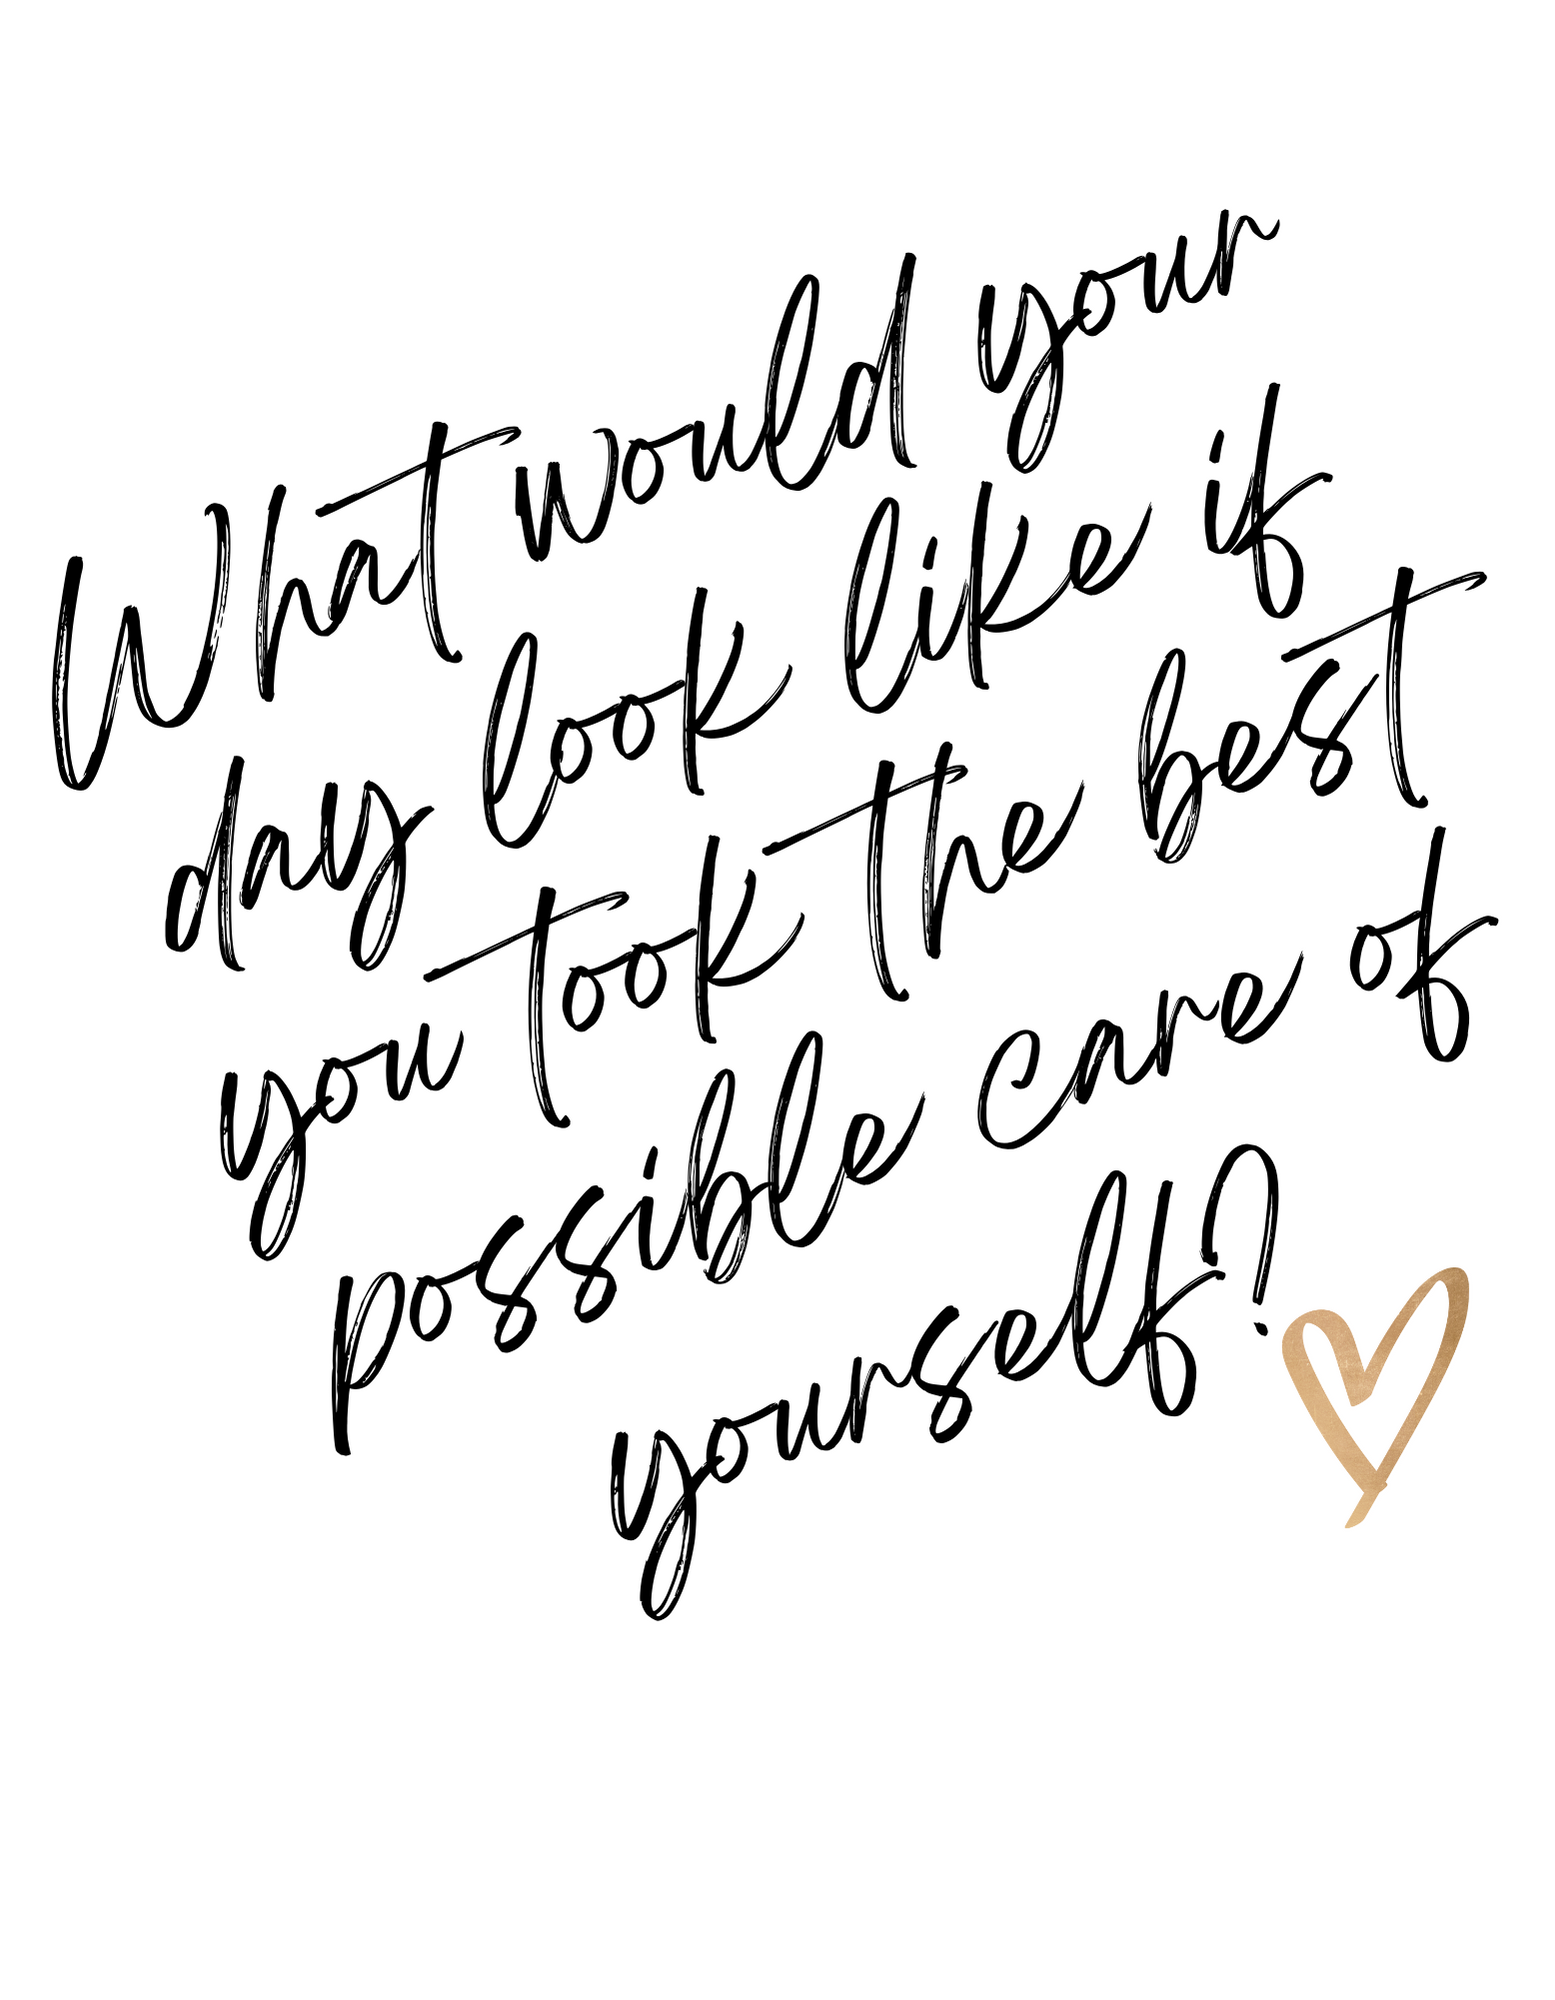 What would your
day look like if
you took the best
possible care of
yourself?